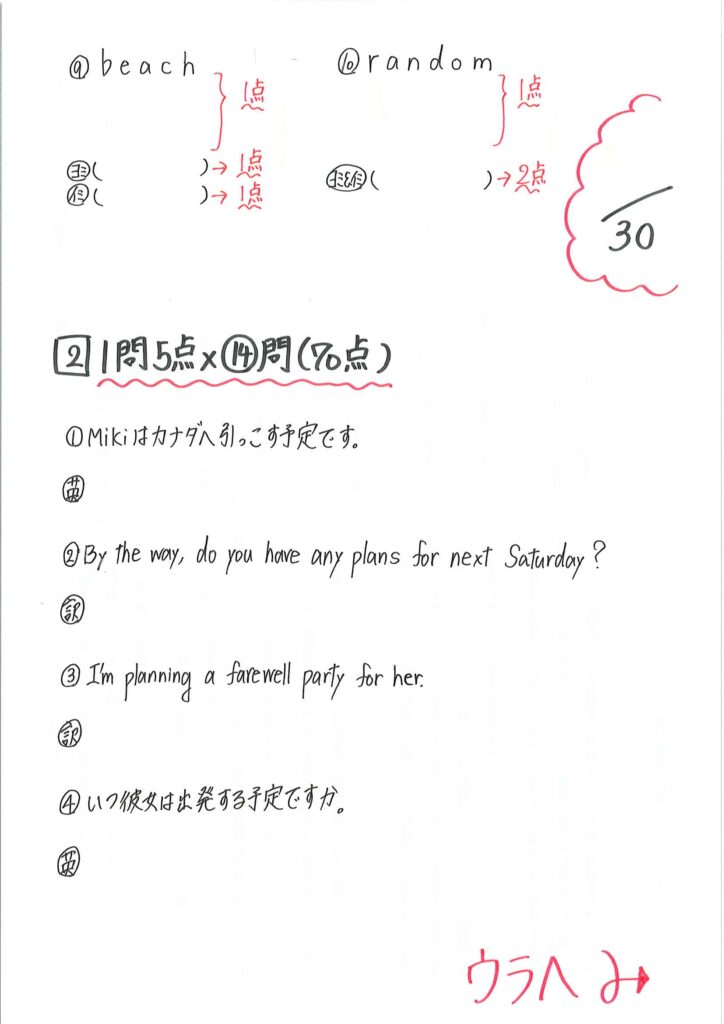 ⑨ beach
⑩ random
1点
1点
ヨミ( )→1点
イミ( )→1点
ヨミ&イミ( )→2点
/30
2 1問5点×⑭問(70点)
①Mikiはカナダへ引っこす予定です。
英
②By the way, do you have any plans for next Saturday?
訳
③I'm planning a farewell party for her.
訳
④いつ彼女は出発する予定ですか。
英
ウラへ →